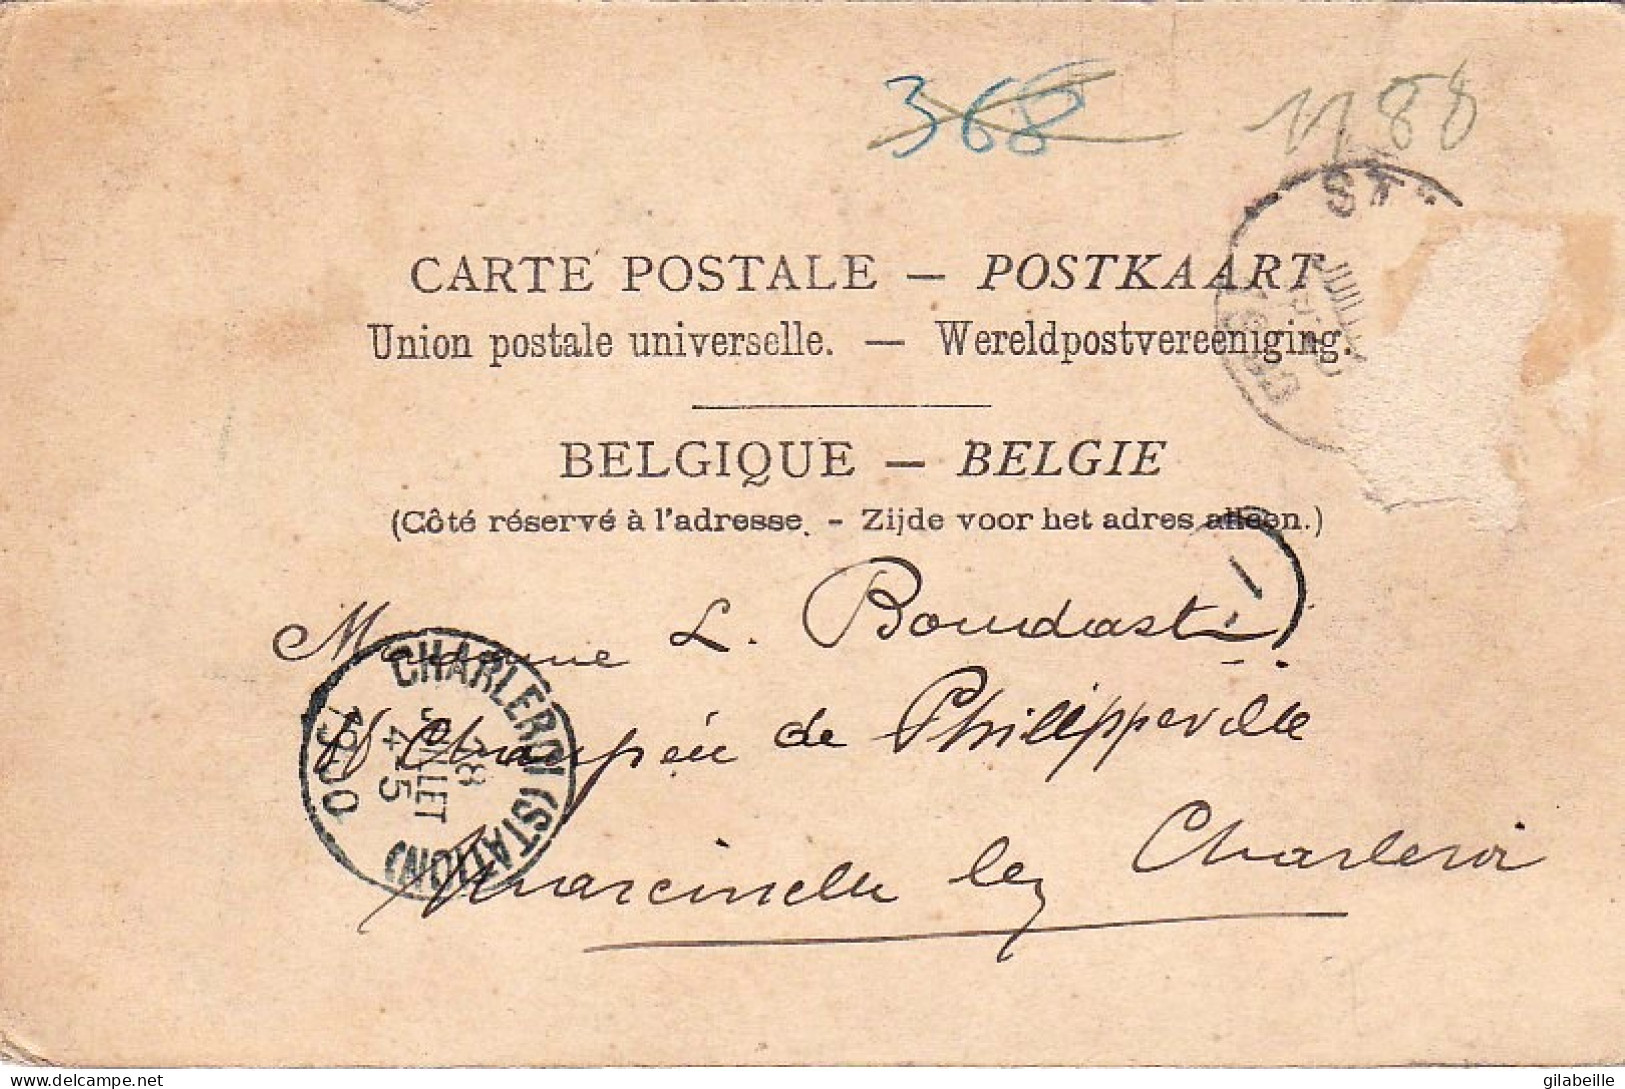 368 1188
ST
JUIL
CARTE POSTALE — POSTKAART
Union postale universelle. — Wereldpostvereeniging.
BELGIQUE — BELGIE
(Côté réservé à l'adresse. - Zijde voor het adres alleen.)
Madame L. Bourdast
de Philippeville
Marcinelle lez Charleroi
CHARLEROI (STATION)
8
JUILLET
4-5
1900
gilabeille